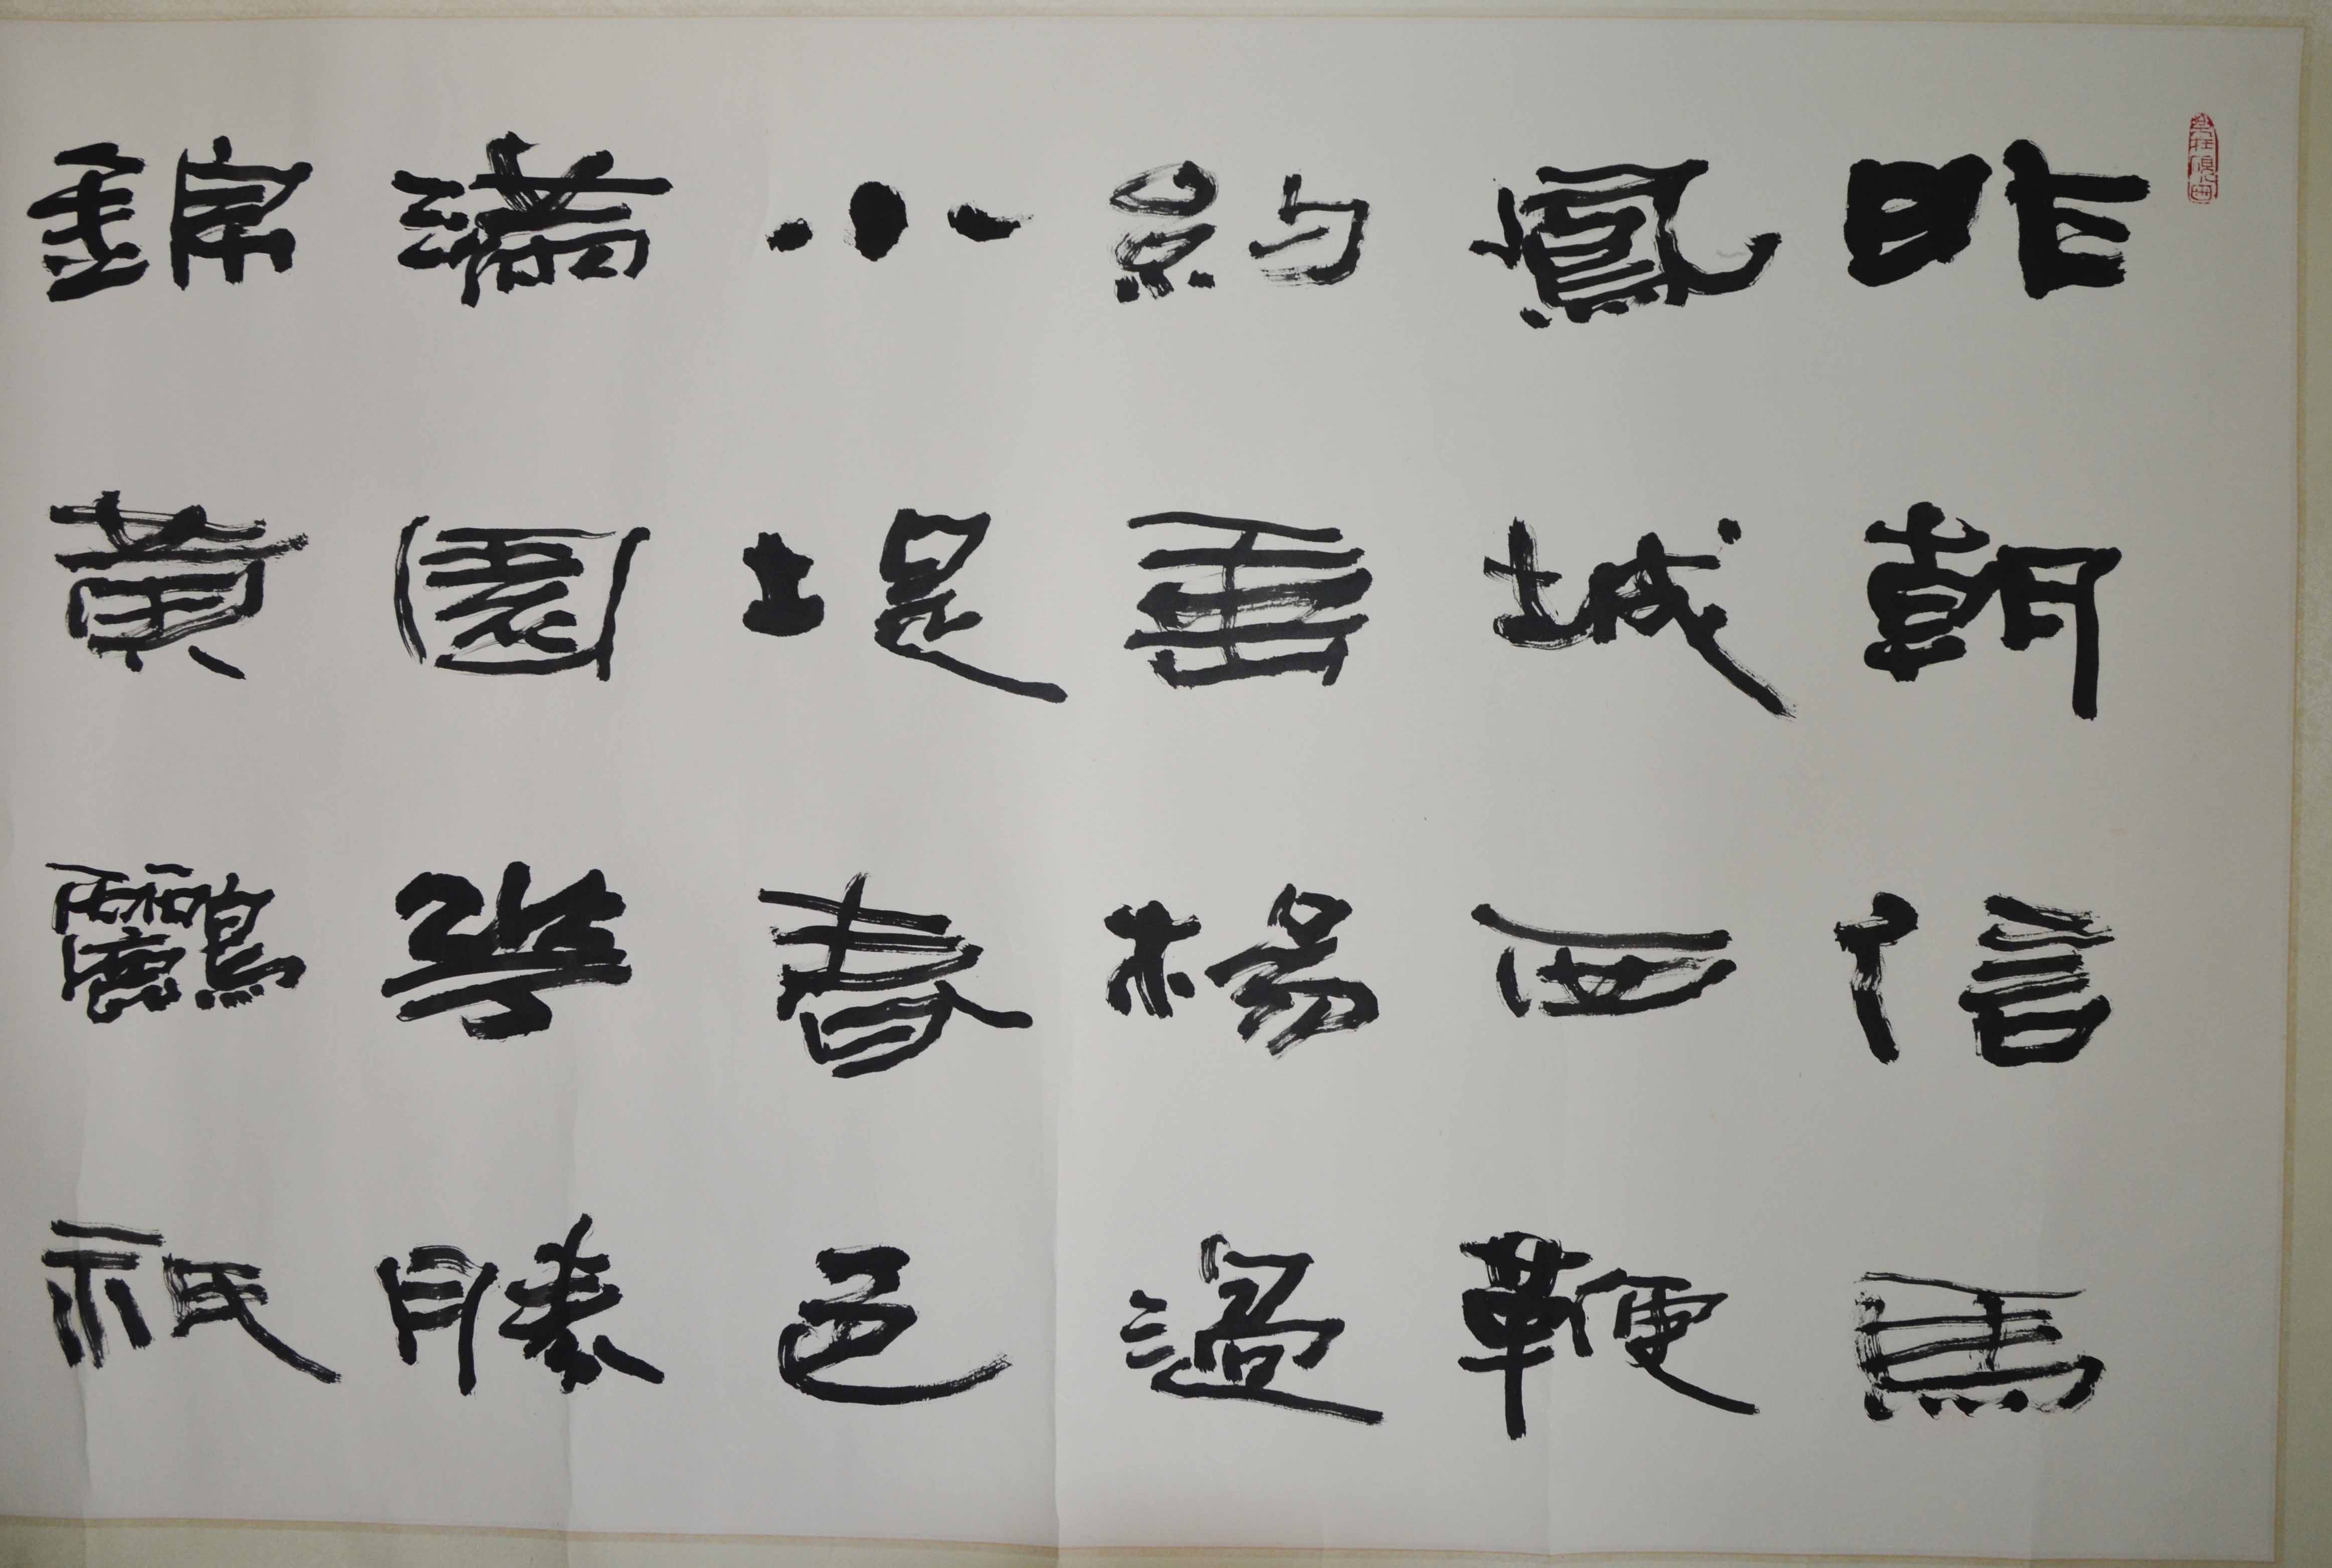 昨朝信馬
鳳城西鞭
約垂楊過
小堤春色
滿園花勝
錦黃鸝祇